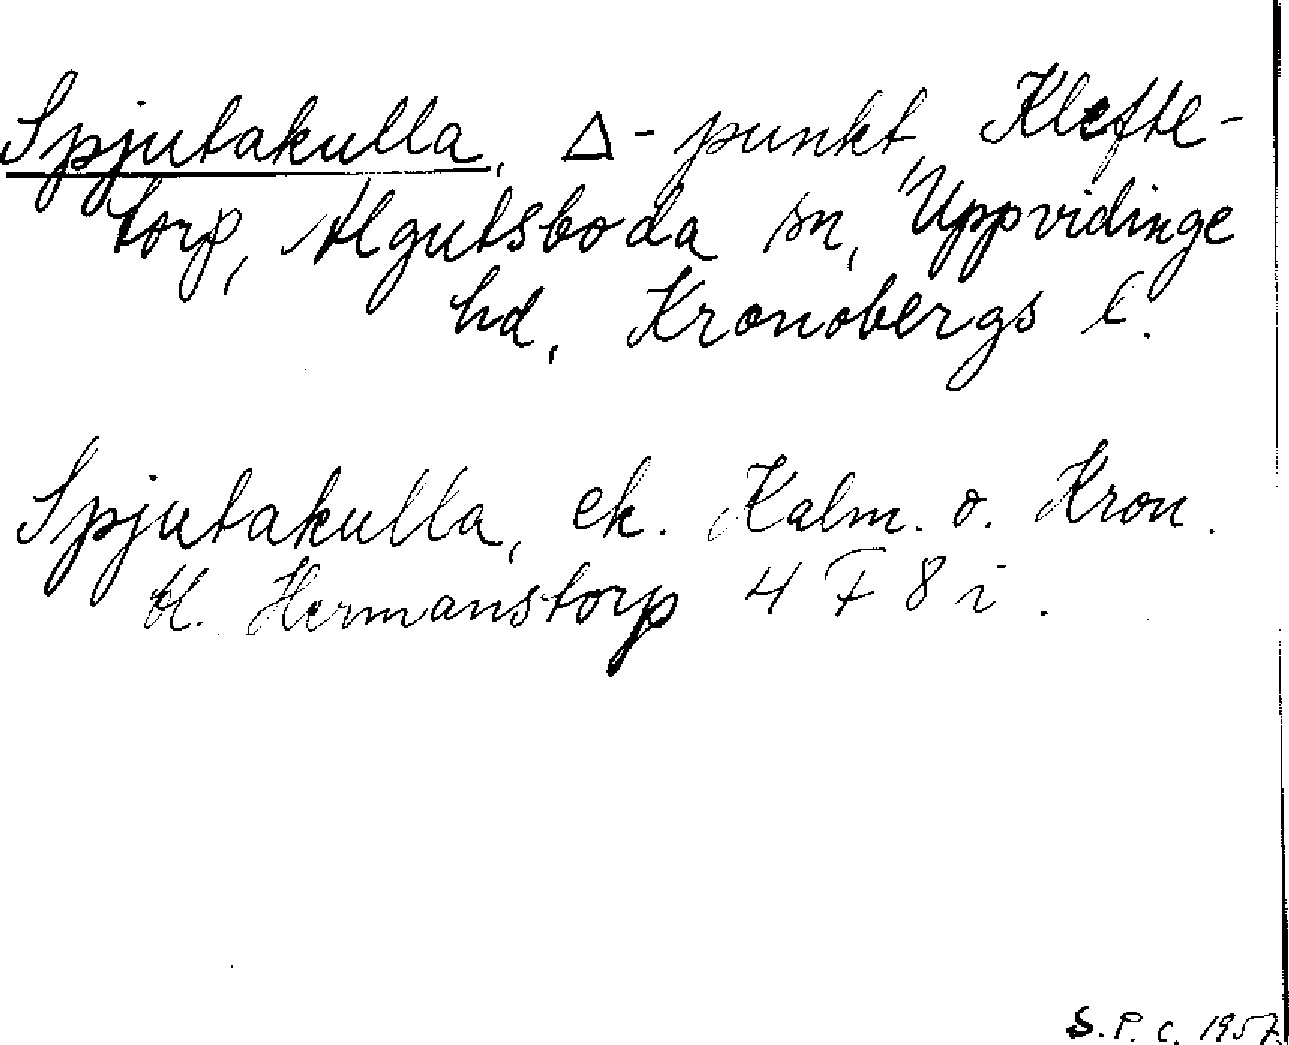 Spjutakulla, Δ-punkt, Klefte-
torp, Algutsboda sn, Uppvidinge
hd, Kronobergs l.
Spjutakulla, ek. Kalm. o. Kron.
bl. Hermanstorp 4 F 8 i.
S.P.C. 1957.